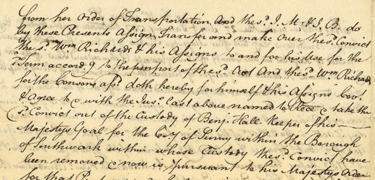 from her Order of Transportation And the sd. J. M & J. B do
by these Presents Assign Transfer and make Over the sd. Convict
to the sd. Wm. Richards & his Assigns to and for his Use for the
Term accordg to the purport of the sd. Act And the sd. Wm Richards
for the Conson afsd. doth hereby for himself & his Assigns Covt.
& agree to & with the Just last above named to take the
sd. Convict out of the Custody of Benj. Hall Keeper of his
Majestys Goal for the Coy. of Surry within the Borough
of Southwark within whose Custody the sd. Convict have
been removed & now is pursuant to his Majestys Order
for that